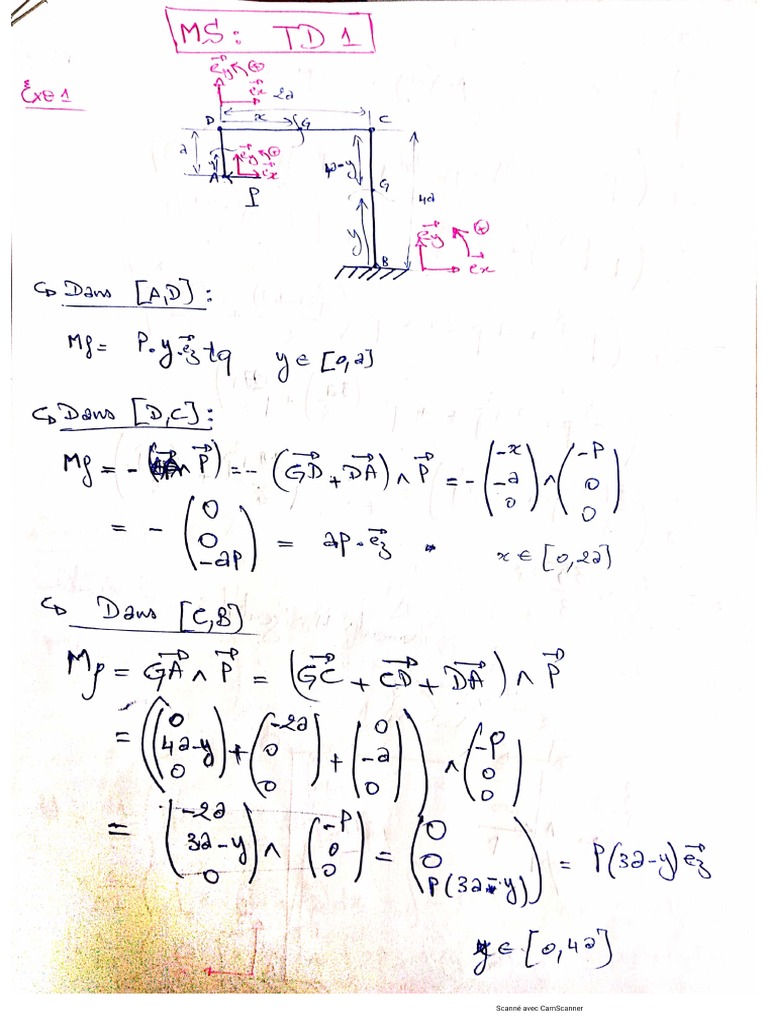 MS: TD 1
Exe 1
e⃗y ⊕
e⃗x
2a
D x G C
a
y
e⃗y ⊕
e⃗x
A
P
4a-y
G
4a
y
B
e⃗y ⊕
e⃗x
↳ Dans [A,D] :
Mf = P.y.e⃗z tq y ∈ [0,a]
↳ Dans [D,C] :
Mf = -(G⃗A ∧ P⃗) = -(G⃗D + D⃗A) ∧ P⃗ = -(-x -a 0) ∧ (-P 0 0)
= -(0 0 -aP) = aP.e⃗z x ∈ [0,2a]
↳ Dans [C,B]
Mf = G⃗A ∧ P⃗ = (G⃗C + C⃗D + D⃗A) ∧ P⃗
= ((0 4a-y 0) + (-2a 0 0) + (0 -a 0)) ∧ (-P 0 0)
= (-2a 3a-y 0) ∧ (-P 0 0) = (0 0 P(3a-y)) = P(3a-y) e⃗z
y ∈ [0,4a]
Scanné avec CamScanner